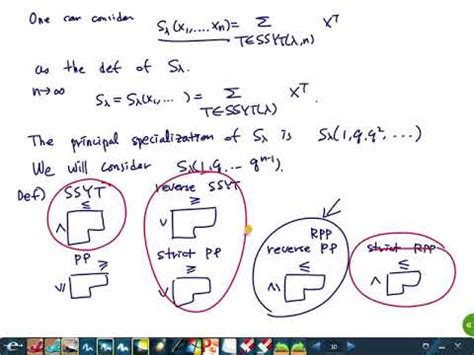 One can consider S_λ(x_1,....x_n) = Σ_{T∈SSYT(λ,n)} X^T
as the def of S_λ.
n→∞ S_λ = S_λ(x_1,...) = Σ_{T∈SSYT(λ)} X^T.
The principal specialization of S_λ is S_λ(1,q,q²,...)
We will consider S_λ(1,q,... q^{n-1}).
Def) SSYT reverse SSYT
≤ ≥
∧ ∨
RPP
PP strict PP reverse PP strict RPP
≥ ≥ ≤ ≤
∨| ∨ ∧| ∧
10